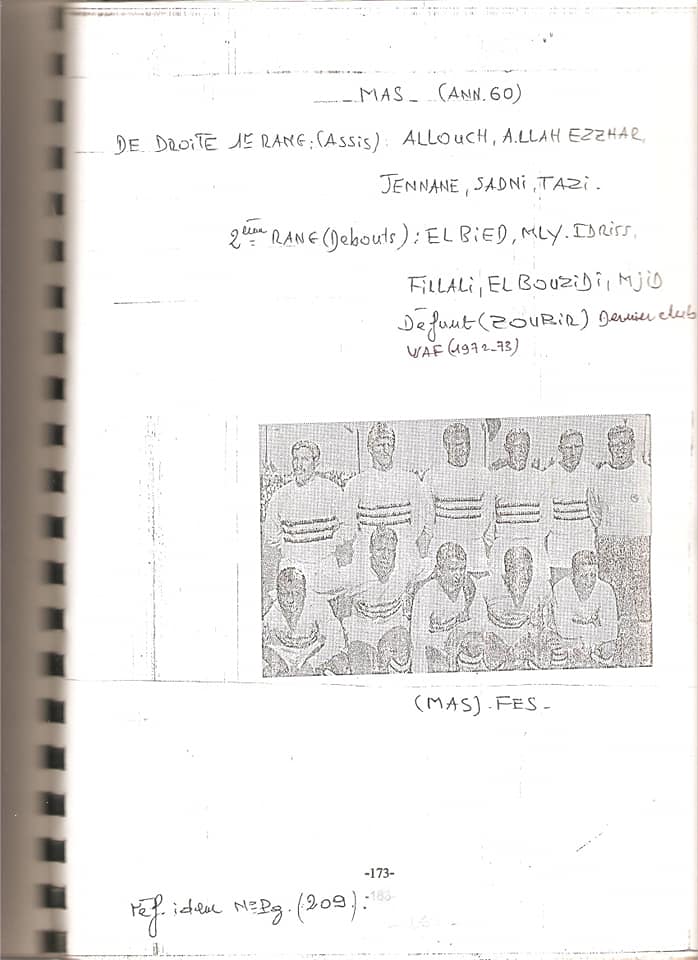 _ MAS _ (ANN.60)
DE DROITE 1E RANG: (ASSIS): ALLOUCH, A.LLAH EZZHAR,
JENNANE, SADNI, TAZI.
2ème RANG (Debouts): EL BIED, MLY. IDRISS,
FILLALI, EL BOUZIDI, MJID
Défunt (ZOUBIR) Dernier club
WAF (1972-73)
(MAS) - FES -
-173-
réf. idem N=Pg. (209):